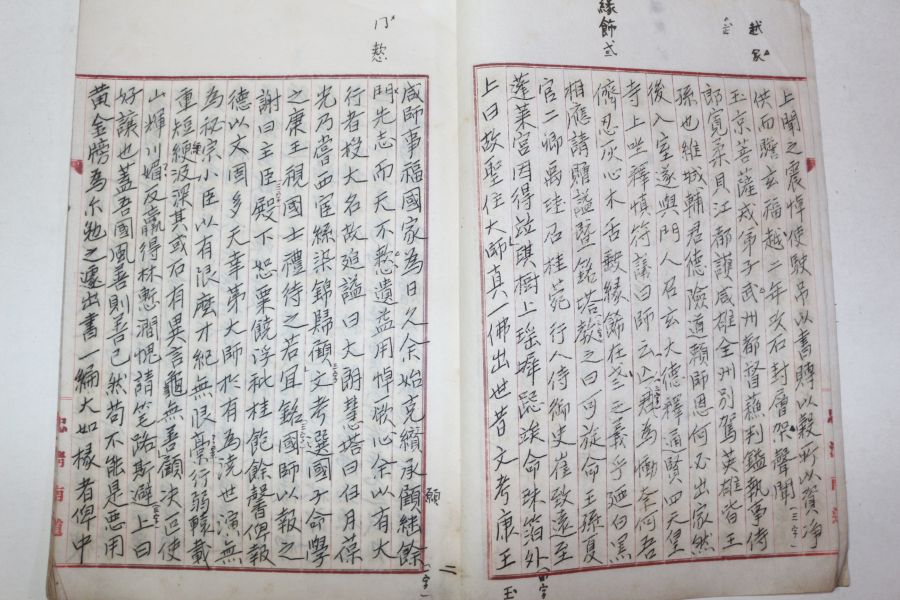 越 家
緣飾
上聞之震悼使駛吊以書賻以穀所以資淨
供而贍玄福越二年攻石封層架聲聞
玉京菩薩戒弟子武州都督蘓判鎰執事侍
郎寬柔貝江都護咸雄全州別駕英雄皆王
孫也維城輔君德險道賴師恩何必出家然
後入室遂與門人召玄大德釋通賢四天皇
寺上坐釋愼符議曰師云亡君為慟奈何吾
儕忍灰心木舌缺緣飾在參之義乎迺白黑
相應請贈諡曁銘塔教之曰可旋命王孫夏
官二卿禹珪召桂苑行人侍御史崔致遠至
蓬萊宮因得竝琪樹上瑤墀跽竢命珠箔外
上曰故聖住大師真一佛出世昔文考康王
門 憖
咸師事福國家為日久余始克纘承顧継餘
願
門先志而天不憖遺益用悼厥心余以有大
行者授大名故追諡曰大朗慧塔曰白月葆
光乃嘗西宦絲染錦歸顧文考選國子命學
之康王視國士禮待之若宜銘國師以報之
謝曰主臣殿下恕粟饒浮秕桂飽餘馨俾報
德以文固多天幸第大師於有為澆世演無
為秘宗小臣以有限麼才紀無限景行弱轅載
重短綆汲深其或石有異言龜無善顧決叵使
山輝川媚反贏得林慙澗愧請筆路斯避上曰
好讓也蓋吾國風善則善已然苟不能是惡用
黃金牓為尒勉之遽出書一編大如椽者俾中